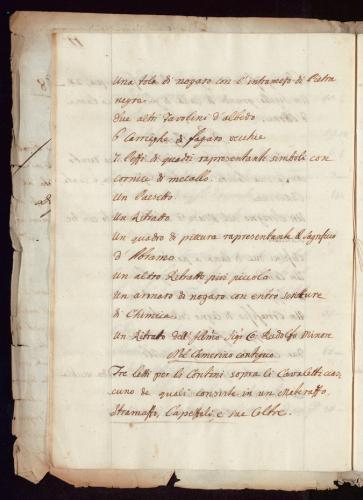 Una tola di nogaro con l'intramezo di Pietra
negra
due altri Tavolini d'albedo
6 Carreghe di fagaro vecchie
7 Pessi di quadri rapresentanti simboli con
cornise di metallo.
Un Paesetto
Un Ritratto
Un quadro di pittura rapresentante il Sagrificio
d'Abramo
Un altro Ritratto più piccolo
Un armaro di nogaro con entro scritture
di Chimica
Un Ritratto dell' Sigr Co: Rodolfo Minore
Nel Camerino contiguo
Tre letti per li Contini sopra li Cavaletti cias-
cuno de quali consiste in un Materasso,
Stramasso, Capezzali, e sue Coltre.